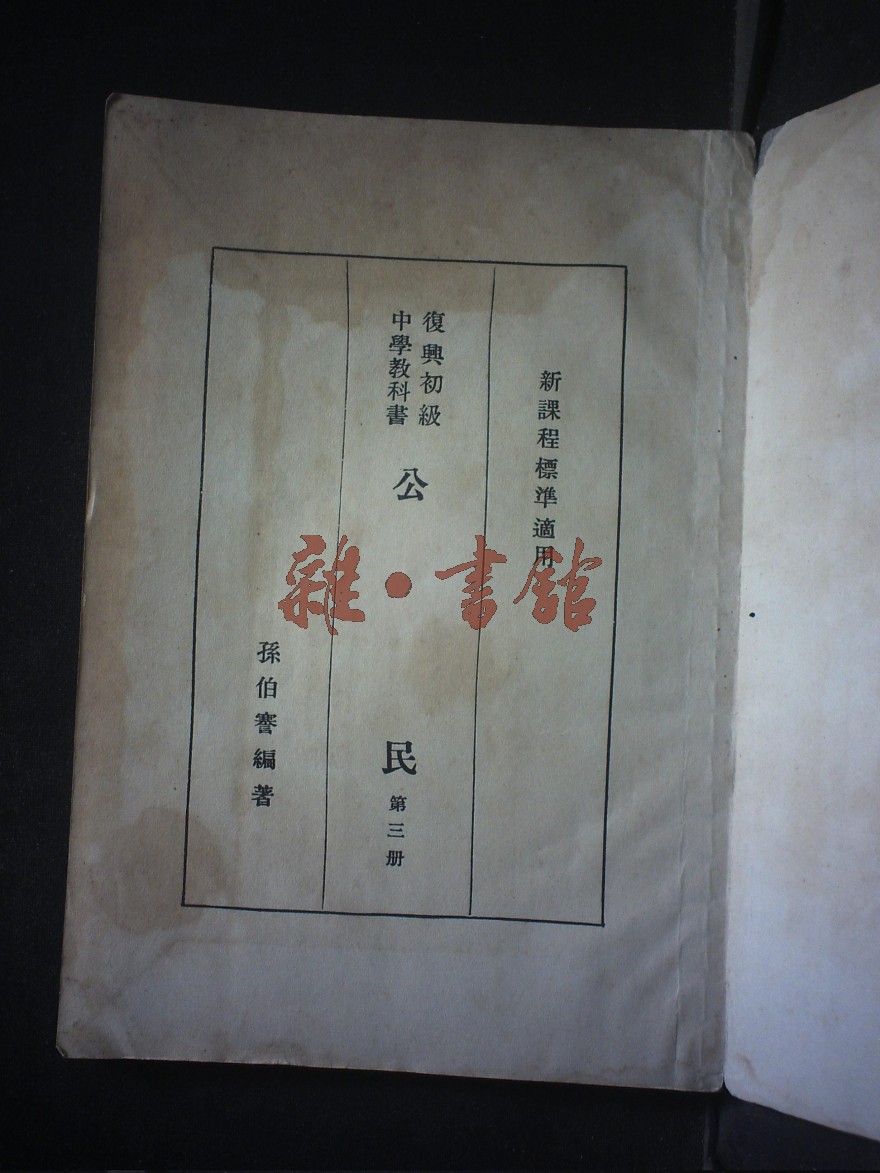 新課程標準適用
復興初級
中學教科書
公民
第三册
孫伯謇編著
雜·書館